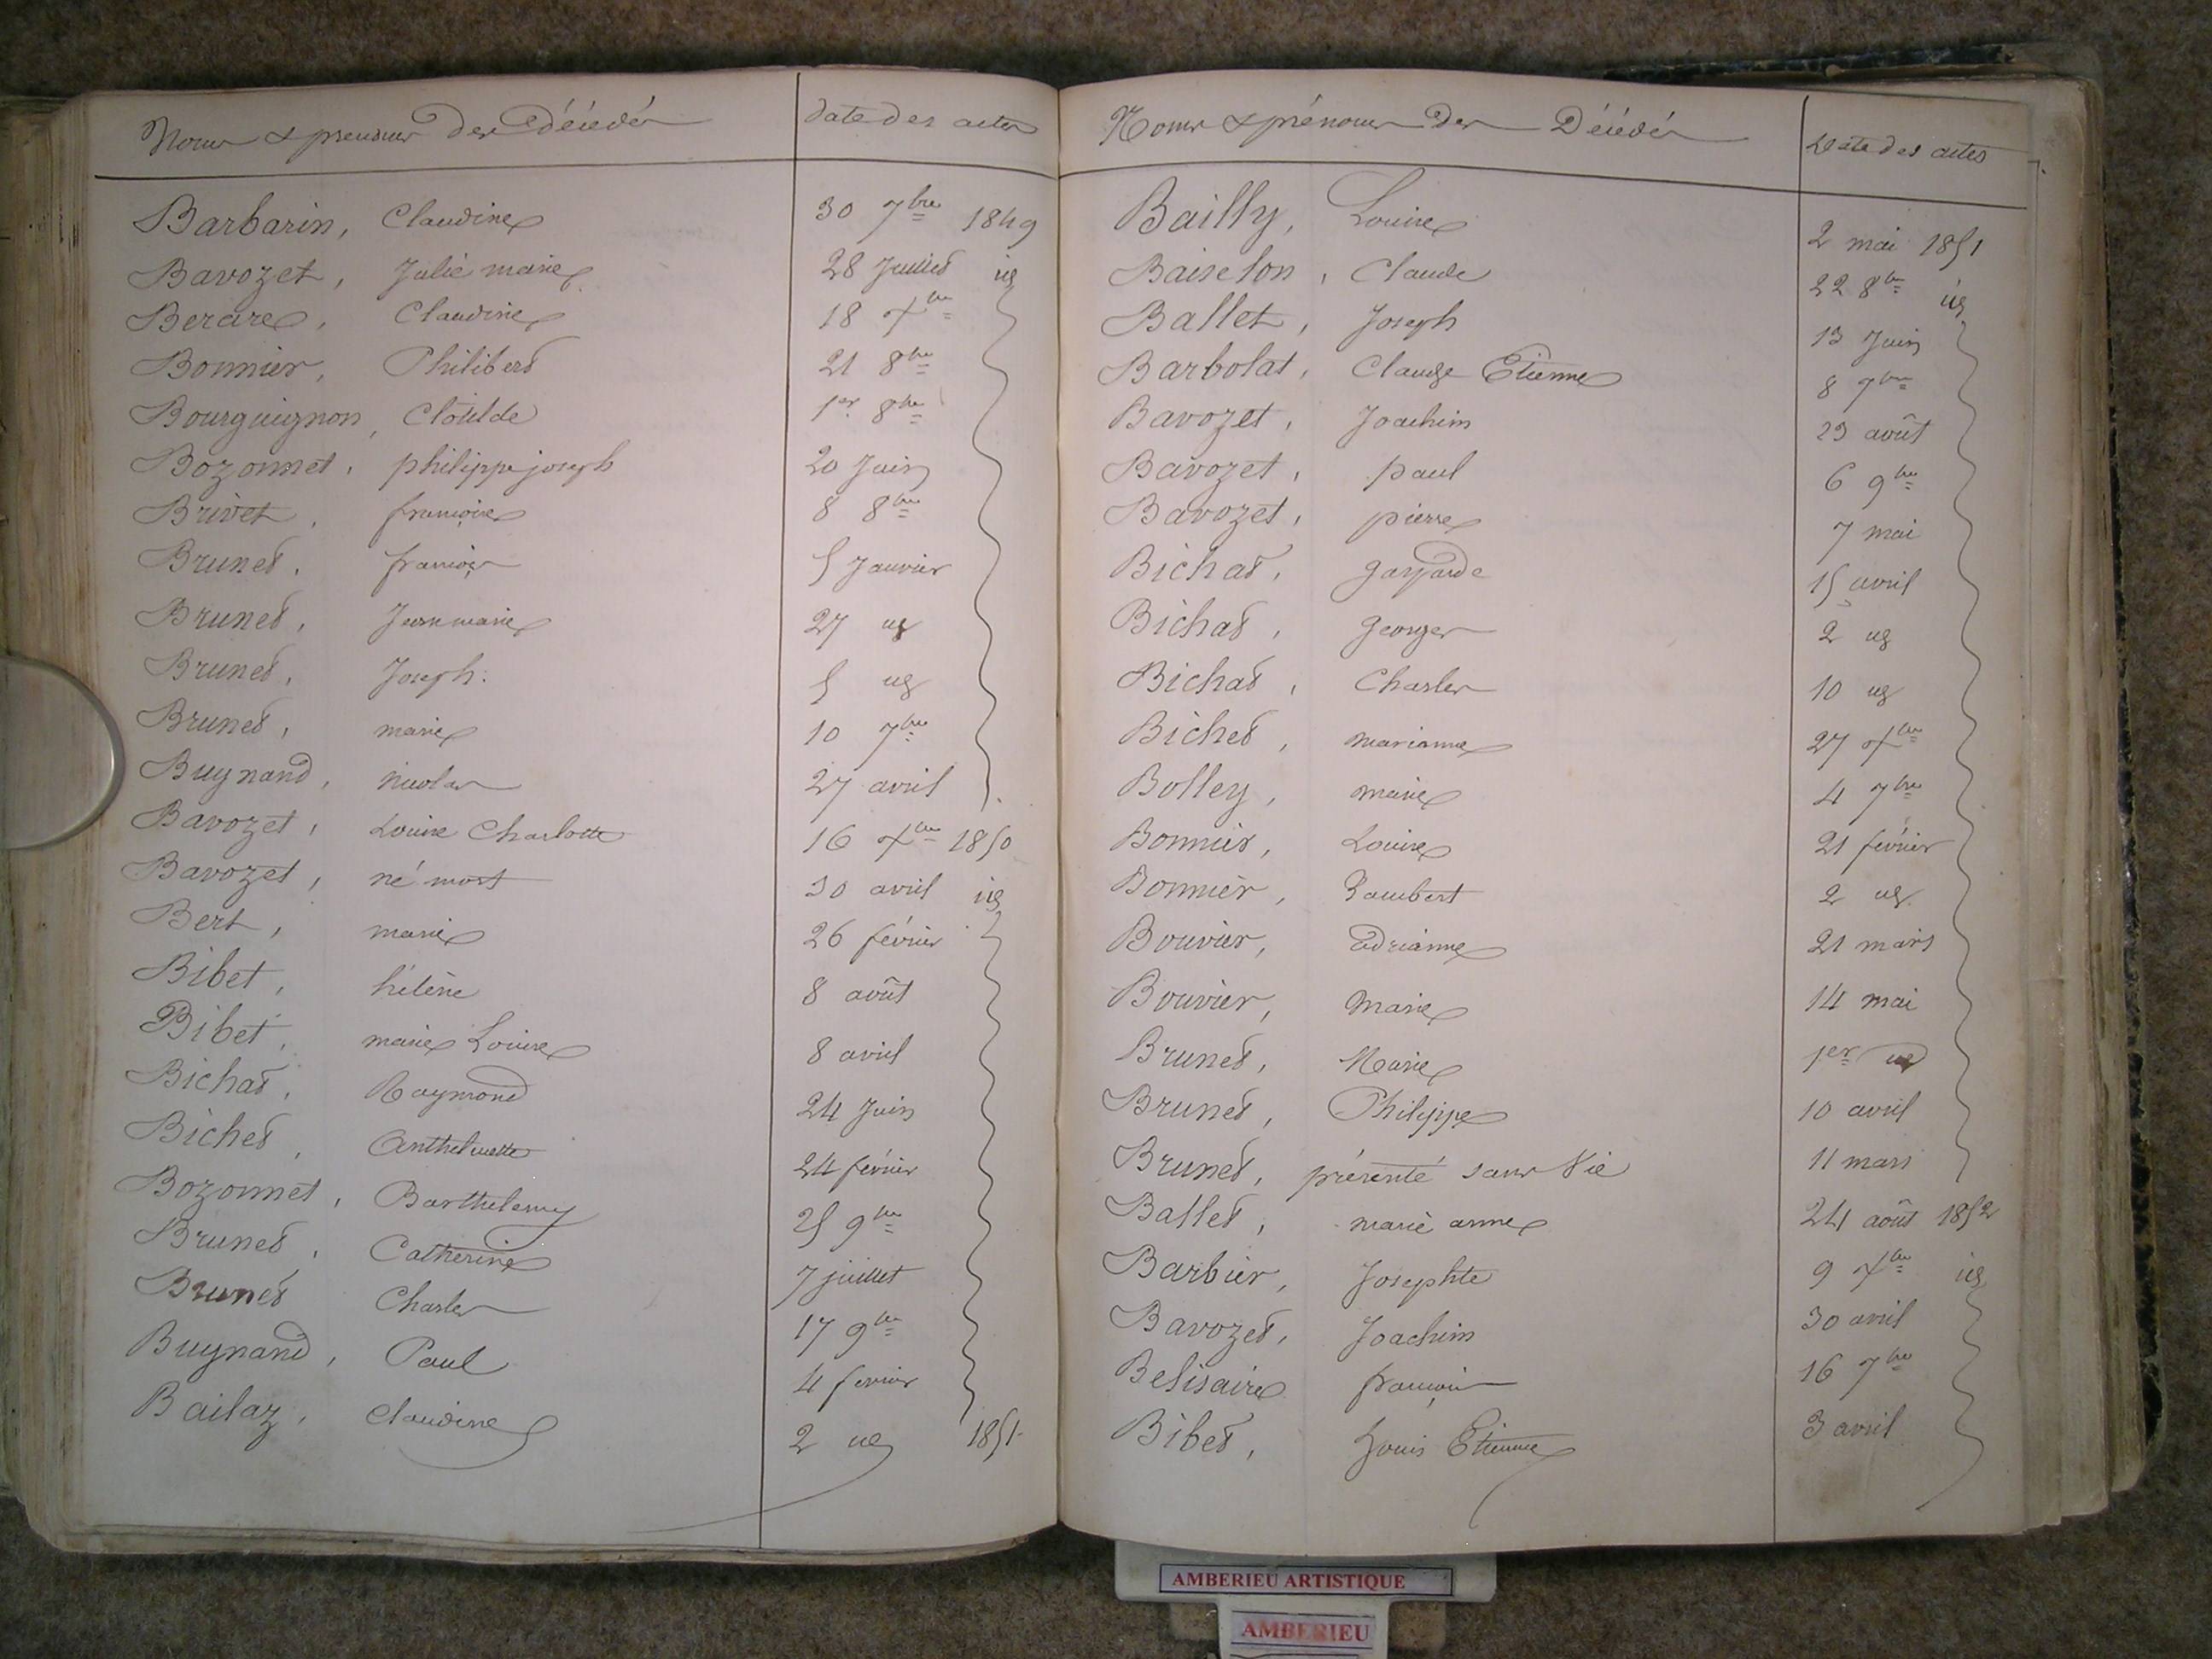 Noms & prenoms des Décédés date des actes
Barbarin, Claudine 30 7bre 1849
Bavozet, Julie marie 28 Juillet id
Berard, Claudine 18 Xbre
Bonnier, Philibert 21 8bre
Bourguignon, Clotilde 1er 8bre
Bozonnet, philippe joseph 20 Juin
Brivet, françoise 8 8bre
Brunet, françois 5 Janvier
Brunet, Jean marie 27 id
Brunet, Joseph. 5 id
Brunet, marie 10 7bre
Buynand, nicolas 27 avril
Bavozet, Louise Charlotte 16 Xbre 1850
Bavozet, né mort 30 avril id
Bert, marie 26 février
Bibet, hélène 8 août
Bibet, marie Louise 8 avril
Bichat, Raymond 24 Juin
Bichet, Anthelmette 24 février
Bozonnet, Barthelemy 25 9bre
Brunet, Catherine 7 juillet
Brunet Charles 17 9bre
Buynand, Paul 4 fevrier
Bailaz, Claudine 2 id 1851
Noms & prénoms des Décédés Date des actes
Bailly, Louise 2 mai 1851
Baiselon, Claude 22 8bre id
Ballet, Joseph 13 Juin
Barbolat, Claude Etienne 8 7bre
Bavozet, Joachim 23 août
Bavozet, paul 6 9bre
Bavozet, pierre 7 mai
Bichat, gasparde 15 avril
Bichat, georges 2 id
Bichat, Charles 10 id
Bichet, marianne 27 Xbre
Bolley, marie 4 7bre
Bonnier, Louise 21 février
Bonnier, Lambert 2 id
Bouvier, adrianne 21 mars
Bouvier, Marie 14 mai
Brunet, Marie 1er id
Brunet, Philippe 10 avril
Brunet, présenté sans Vie 11 mars
Ballet, marie anne 24 août 1852
Barbier, Josephte 9 Xbre id
Bavozet, Joachim 30 avril
Belisaire françois 16 7bre
Bibet, Louis Etienne 3 avril
AMBERIEU ARTISTIQUE
AMBERIEU